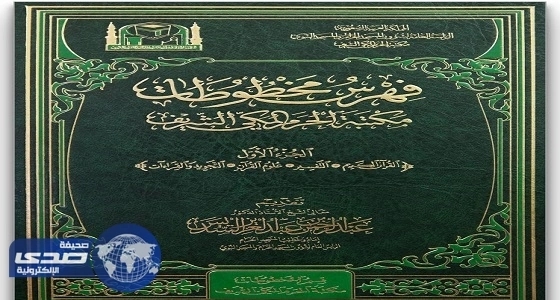 المملكة العربية السعودية
الرئاسة العامة لشؤون المسجد الحرام والمسجد النبوي
مكتبة الحرم المكي الشريف
فهرس مخطوطات
مكتبة الحرم المكي الشريف
الجزء الأول
القرآن الكريم * التفسير * علوم القرآن * التجويد والقراءات
تقديم
معالي الشيخ الأستاذ الدكتور
عبد الرحمن بن عبد العزيز السديس
إمام وخطيب المسجد الحرام
صحيفة
صدى
الإلكترونية